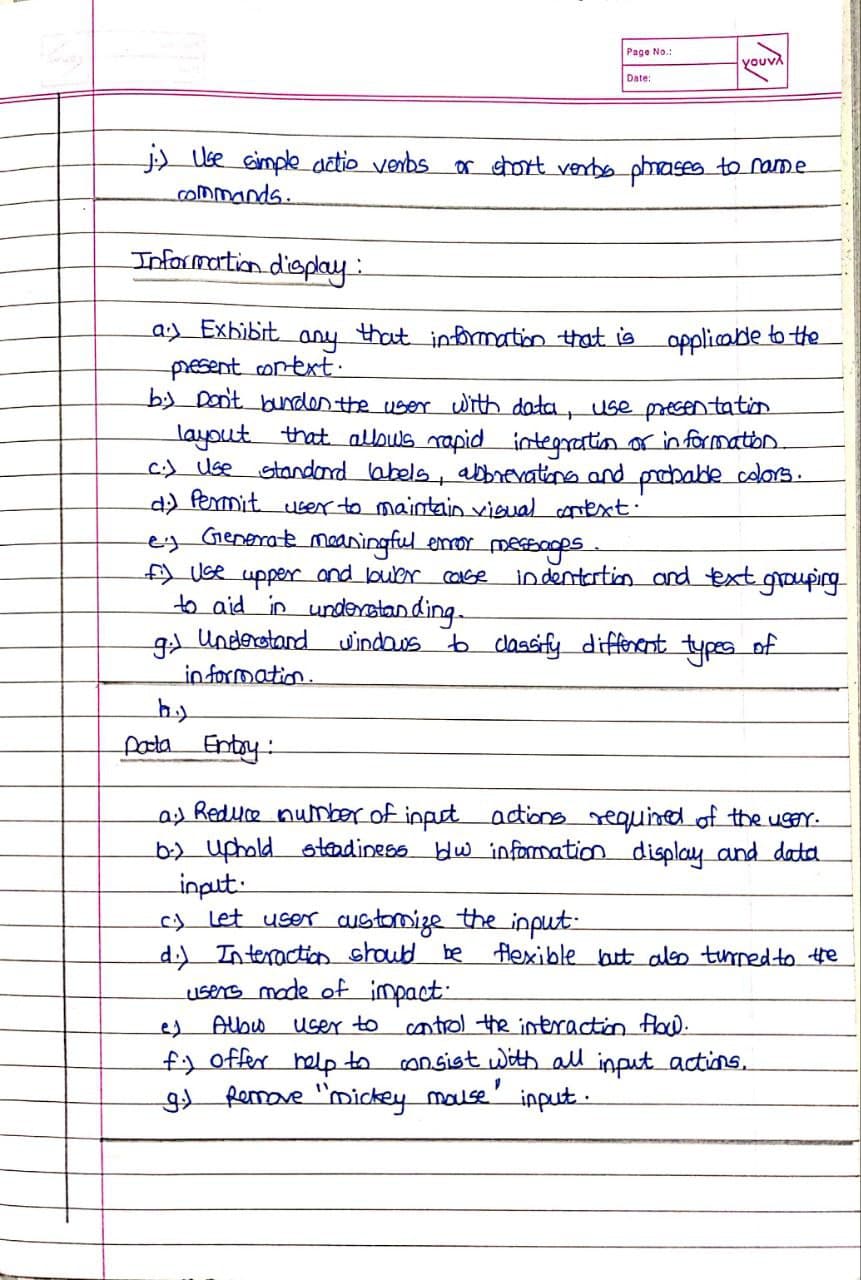 Page No.:
Date:
youva
j.) Use simple actio verbs or short verbs phrases to name
commands.
Information display :
a.) Exhibit any that information that is applicable to the
present context.
b.) Don't burden the user with data, use presentation
layout that allows rapid integration or information.
c.) Use standard labels, abbrevations and probable colors.
d.) Permit user to maintain visual context.
e.) Generate meaningful error messages.
f.) Use upper and lower case indentation and text grouping
to aid in understanding.
g.) Understand windows to classify different types of
information.
h.)
Data Entry :
a.) Reduce number of input actions required of the user.
b.) Uphold steadiness b/w information display and data
input.
c.) Let user customize the input.
d.) Interaction should be flexible but also turned to the
users mode of impact.
e) Allow user to control the interaction flow.
f.) Offer help to consist with all input actions.
g.) Remove "mickey mouse" input.